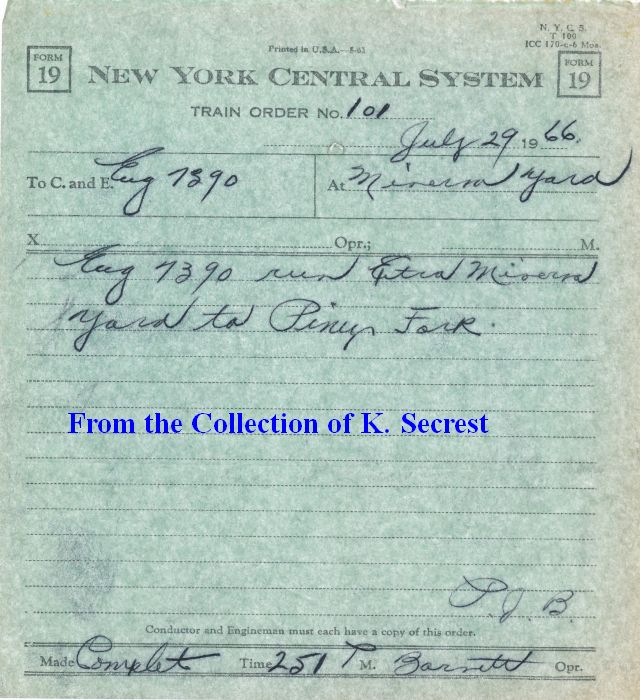 N. Y. C. S.
T 100
ICC 170-c-6 Mos.
Printed in U.S.A.—8-63
FORM 19
NEW YORK CENTRAL SYSTEM
FORM 19
TRAIN ORDER NO. 101
July 29 19 66.
To C. and E. Eng 7390 At Minerva Yard
X Opr.; M.
Eng 7390 run Extra Minerva
Yard to Piney Fork.
From the Collection of K. Secrest
P.J.B.
Conductor and Engineman must each have a copy of this order.
Made Complet Time 251 P M. Barnett Opr.